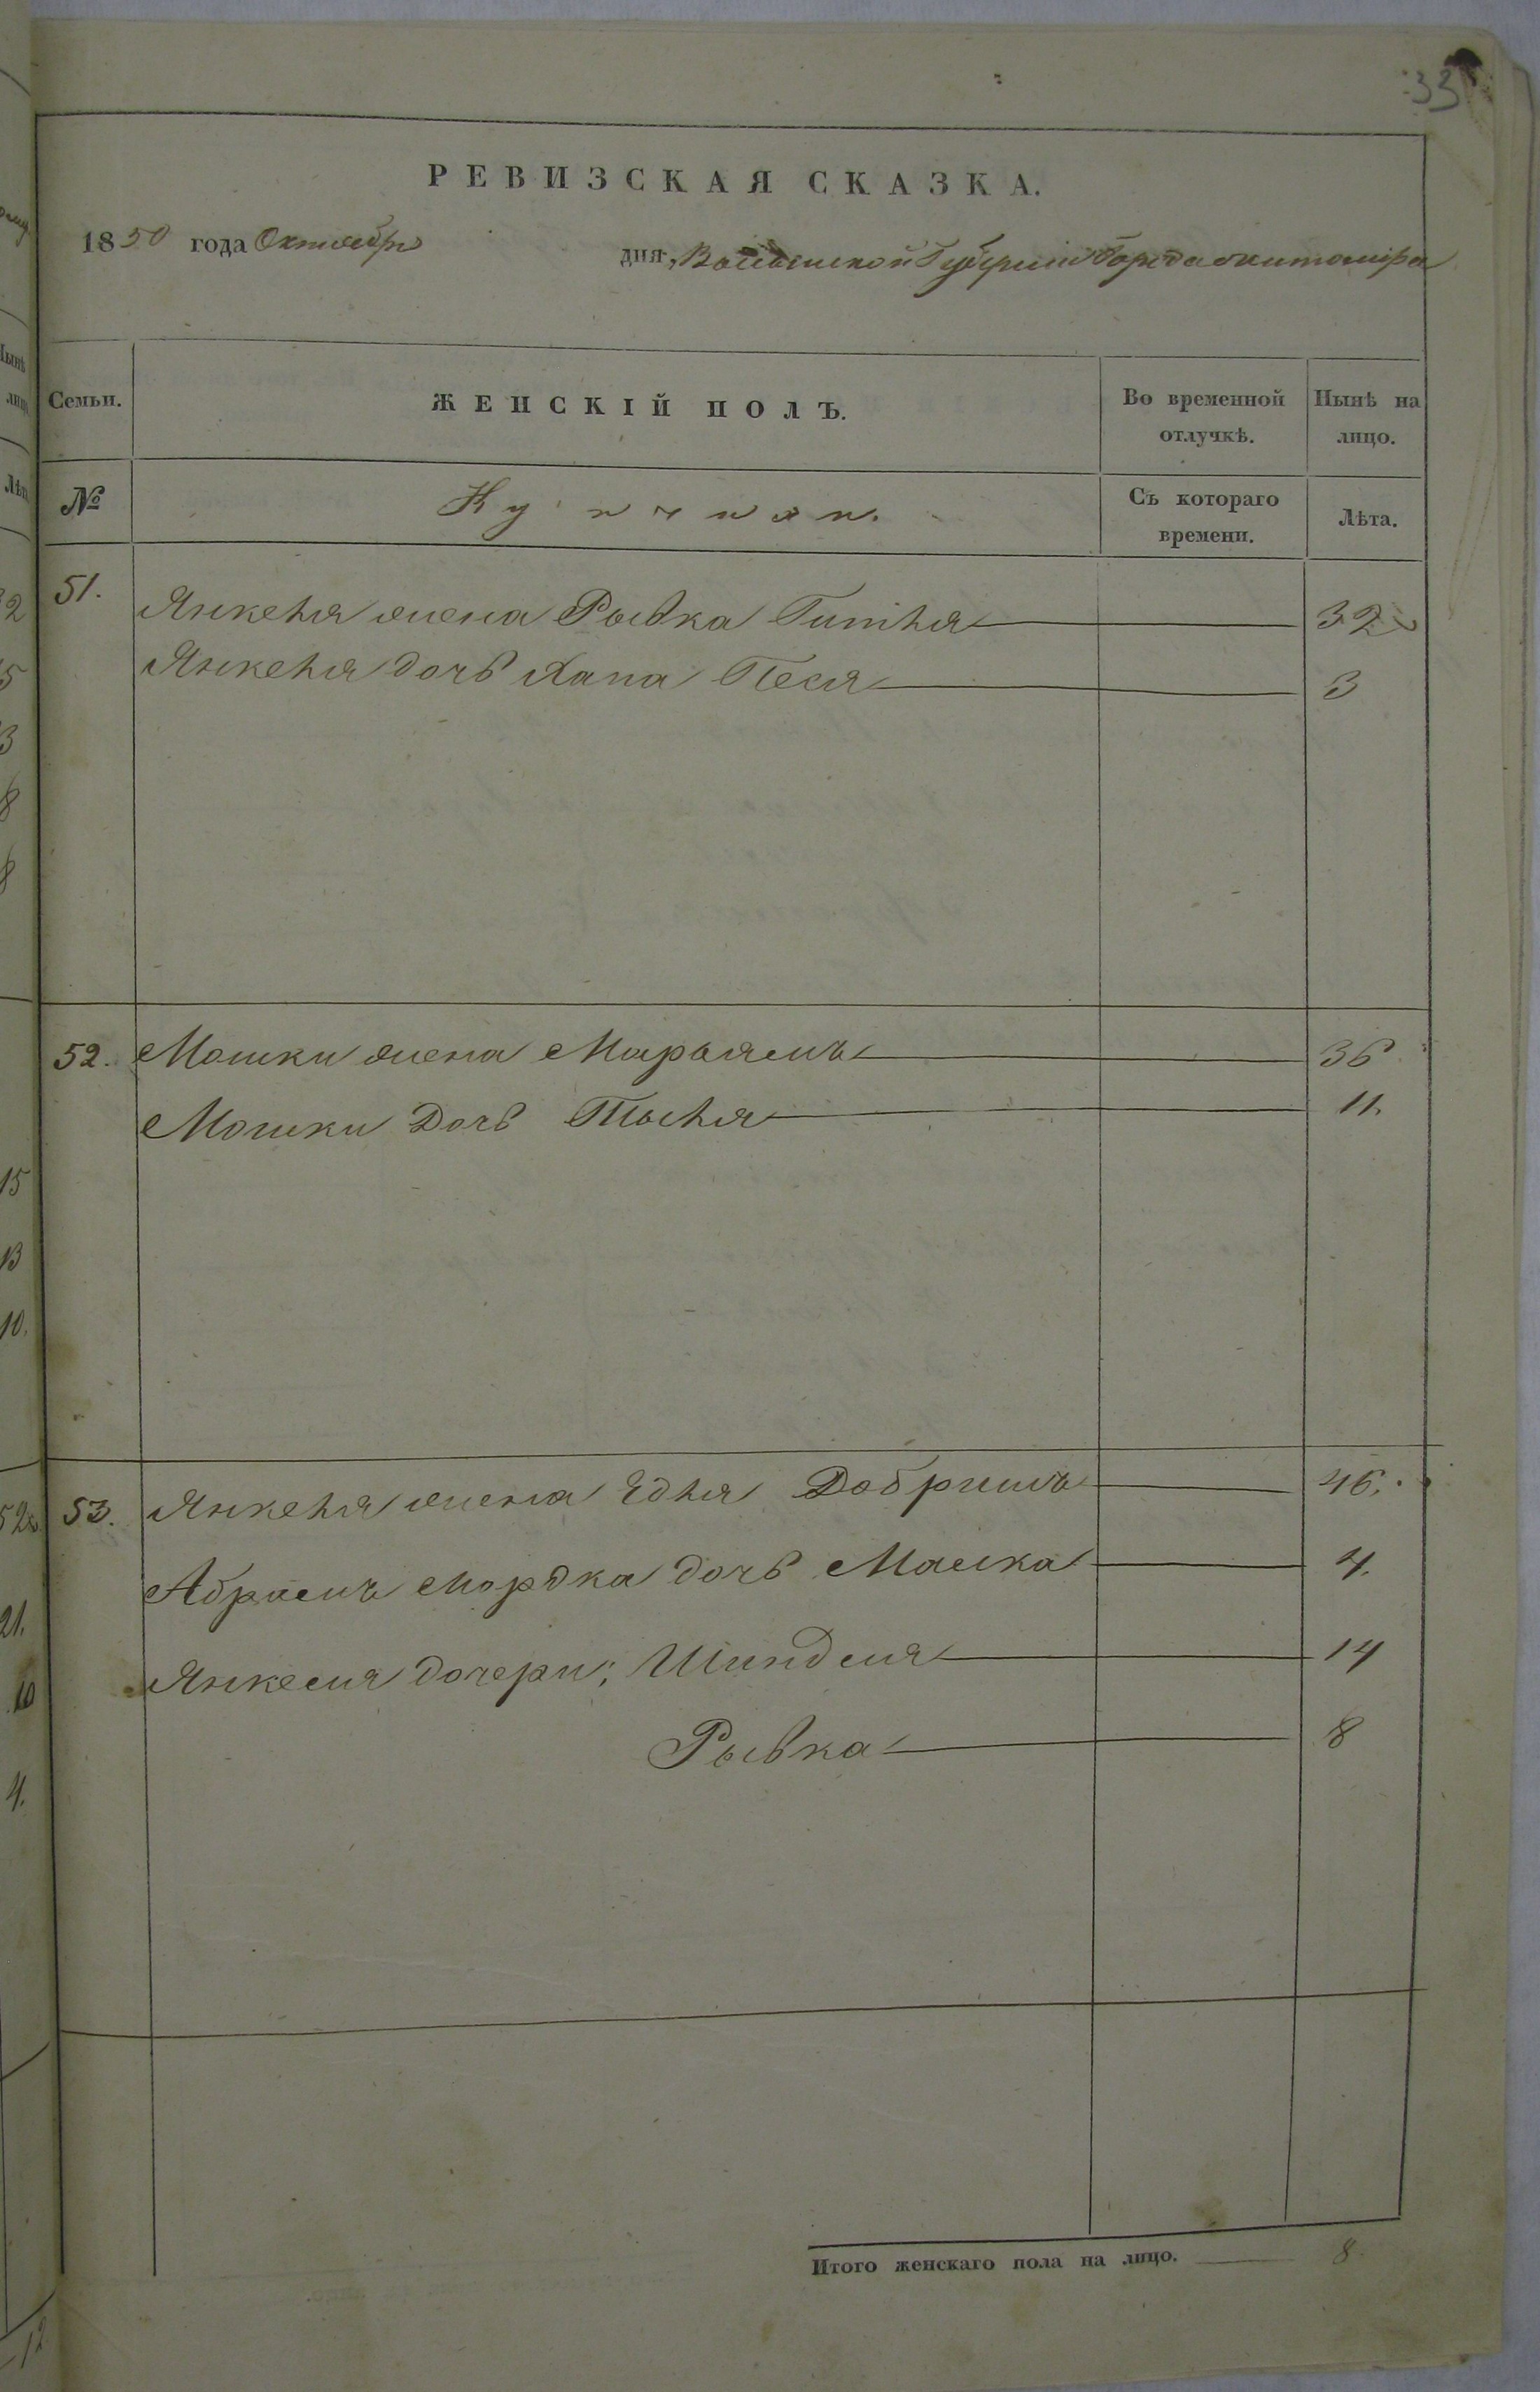 33
РЕВИЗСКАЯ СКАЗКА.
1850 года Октября дня, Волынской Губернии Города Житомира
Семьи. ЖЕНСКІЙ ПОЛЪ. Во временной отлучкѣ. Нынѣ на лицо.
№ Съ котораго времени. Лѣта.
51. Янкеля жена Рывка Гитля 32
Янкеля дочь Хана Песя 3
52. Мошки жена Марьямъ 36
Мошки Дочь 11.
53. Янкеля жена Едля Добришъ 46.
Абрамъ Мордка дочь Малка 4.
Янкеля дочери; Шинделя 14
Рывка 8
Итого женскаго пола на лицо. 8